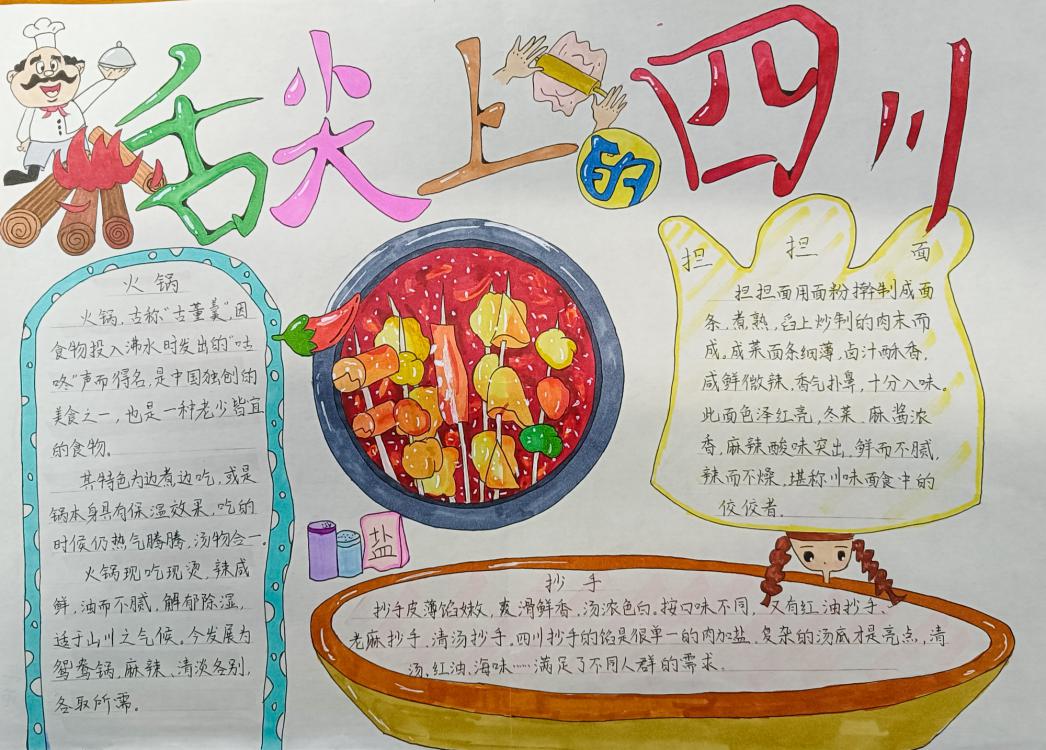 舌尖上的四川
火锅
火锅,古称“古董羹”,因
食物投入沸水时发出的“咕
咚”声而得名,是中国独创的
美食之一,也是一种老少皆宜
的食物。
其特色为边煮边吃,或是
锅本身具有保温效果,吃的
时候仍热气腾腾,汤物合一。
火锅现吃现烫,辣咸
鲜,油而不腻,解郁除湿,
适于山川之气候,今发展为
鸳鸯锅,麻辣、清淡各别,
各取所需。
担担面
担担面用面粉擀制成面
条,煮熟,舀上炒制的肉末而
成。成菜面条细薄,卤汁酥香,
咸鲜微辣、香气扑鼻,十分入味。
此面色泽红亮,冬菜、麻酱浓
香,麻辣酸味突出,鲜而不腻,
辣而不燥,堪称川味面食中的
佼佼者。
盐
抄手
抄手皮薄馅嫩,爽滑鲜香,汤浓色白。按口味不同,又有红油抄手、
老麻抄手、清汤抄手。四川抄手的馅是很单一的肉加盐,复杂的汤底才是亮点,清
汤、红油、海味……满足了不同人群的需求。